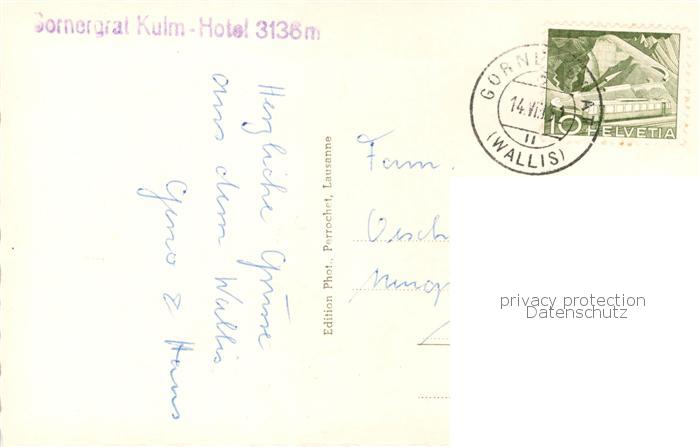 Gornergrat Kulm-Hotel 3136m
Herzliche Grüsse
aus dem Wallis
Geno & Hans
Edition Phot., Perrochet, Lausanne
GORNERGRAT
14.VII.
(WALLIS)
10 HELVETIA
Fam.
Oesch
privacy protection
Datenschutz